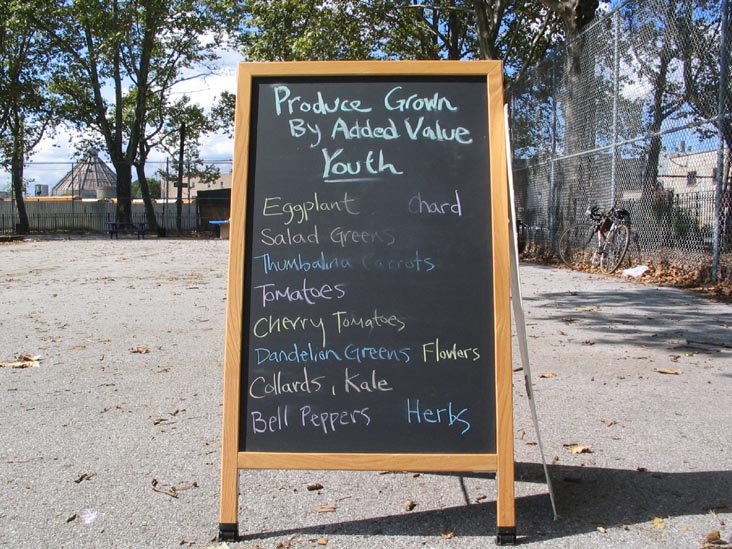 Produce Grown
By Added Value
Youth
Eggplant Chard
Salad Greens
Thumbalina Carrots
Tomatoes
Cherry Tomatoes
Dandelian Greens Flowers
Collards, Kale
Bell Peppers Herbs